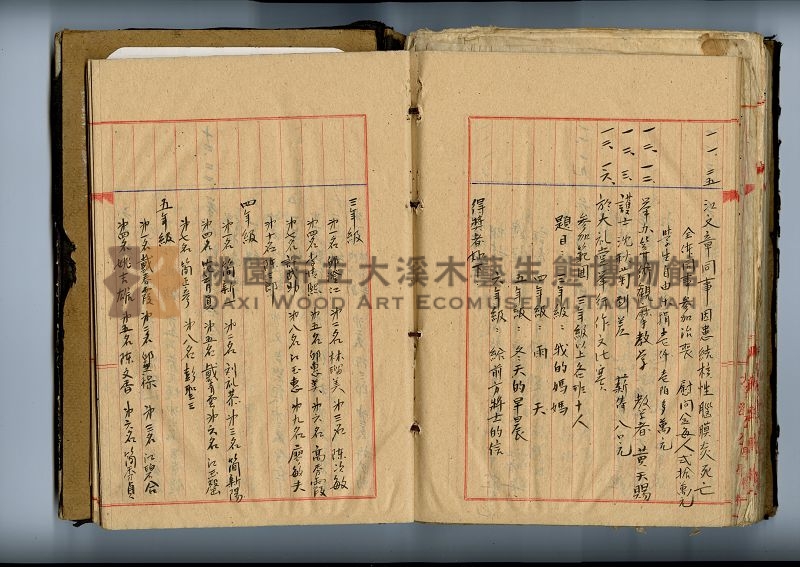 一一、二五 江文章同事因患結核性腦膜炎死亡
全體同事參加治喪 慰問金每人弍拾萬元
學生自由樂捐 壱千 壱百 多萬元
一二、一二、舉办算術觀摩教學 教学者 黃天賜
一二、三、護士沈秋菊到差 薪俸八〇元
一二、一六、於大礼堂舉行作文比賽
參加範囲 三年級以上各班十人
題目 三年級：我的媽媽
四年級：雨 天
五年級：冬天的早晨
六年級：給前方將士的信
得奬者如下
三年級
第二名 林瑞美 第三名 陳次敏
第四名 第五名 邱惠美 第六名 高杏霞
第七名 第八名 江玉惠 第九名 廖敏夫
第十名
四年級
第一名 簡新 第二名 刘礼恭 第三名 簡新陽
第四名 第五名 戴 雲 第六名 江玉
第七名 簡正彥 第八名 彭聖三
五年級
第一名 戴春霞 第二名 邱 操 第三名 江碧合
第四名 姚吉雄 第五名 陳文香 第六名 簡秀貞
桃園市立大溪木藝生態博物館
DAXI WOOD ART ECOMUSEUM TAOYUAN